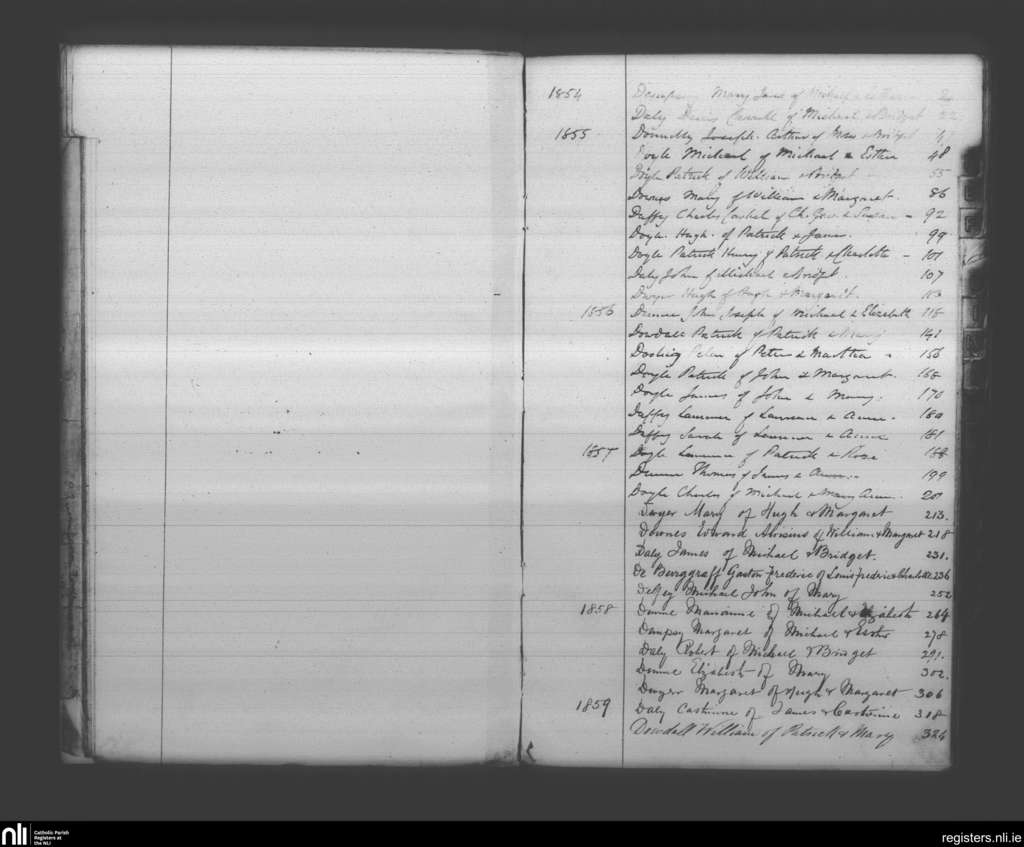 1854 Dempsey Mary Jane of Michael & Esther
Daly Denis Carroll of Michael & Bridget 22
1855 Donnelly Joseph Arthur of & Bridget
Doyle Michael of Michael & Esther 48
Doyle Patrick of William & Bridget 55
Downes Mary of William & Margaret. 86
Duffey Charles of Ch. Gav. & Susan - 92
Doyle Hugh of Patrick & Jane. 99
Doyle Patrick Henry of Patrick & Charlotte - 101
Daly John of Michael & Bridget. 107
Dwyer Hugh of Hugh & Margaret.
1856 Dunne John Joseph of Michael & Elizabeth 118
Dowdall Patrick of Patrick & Mary 141
Peter of Peter & Martha 156
Doyle Patrick of John & Margaret. 168
Doyle James of John & Mary. 170
Duffey Laurence of Laurence & Anne. 180
Duffey Sarah of Laurence & Anne 181
1857 Doyle Laurence of Patrick & Rose 188
Dunne Thomas of James & Anne. 199
Doyle Charles of Michael & Mary Anne. 201
Dwyer Mary of Hugh & Margaret 213.
Downes Edward Aloisius of William & Margaret 218
Daly James of Michael & Bridget. 231.
De Burggraff Gaston Frederic of Louis Frederic & Charlotte 236
Delfey Michael John of Mary 252
1858 Dunne Marianne of Michael & Elizabeth 264
Dempsy Margaret of Michael & Esther 278
Daly Robert of Michael & Bridget 291.
Dunne Elizabeth of Mary 302.
Dwyer Margaret of Hugh & Margaret 306
1859 Daly Catherine of James & Catherine 318
Dowdall William of Patrick & Mary 324
nli Catholic Parish Registers at the NLI
registers.nli.ie